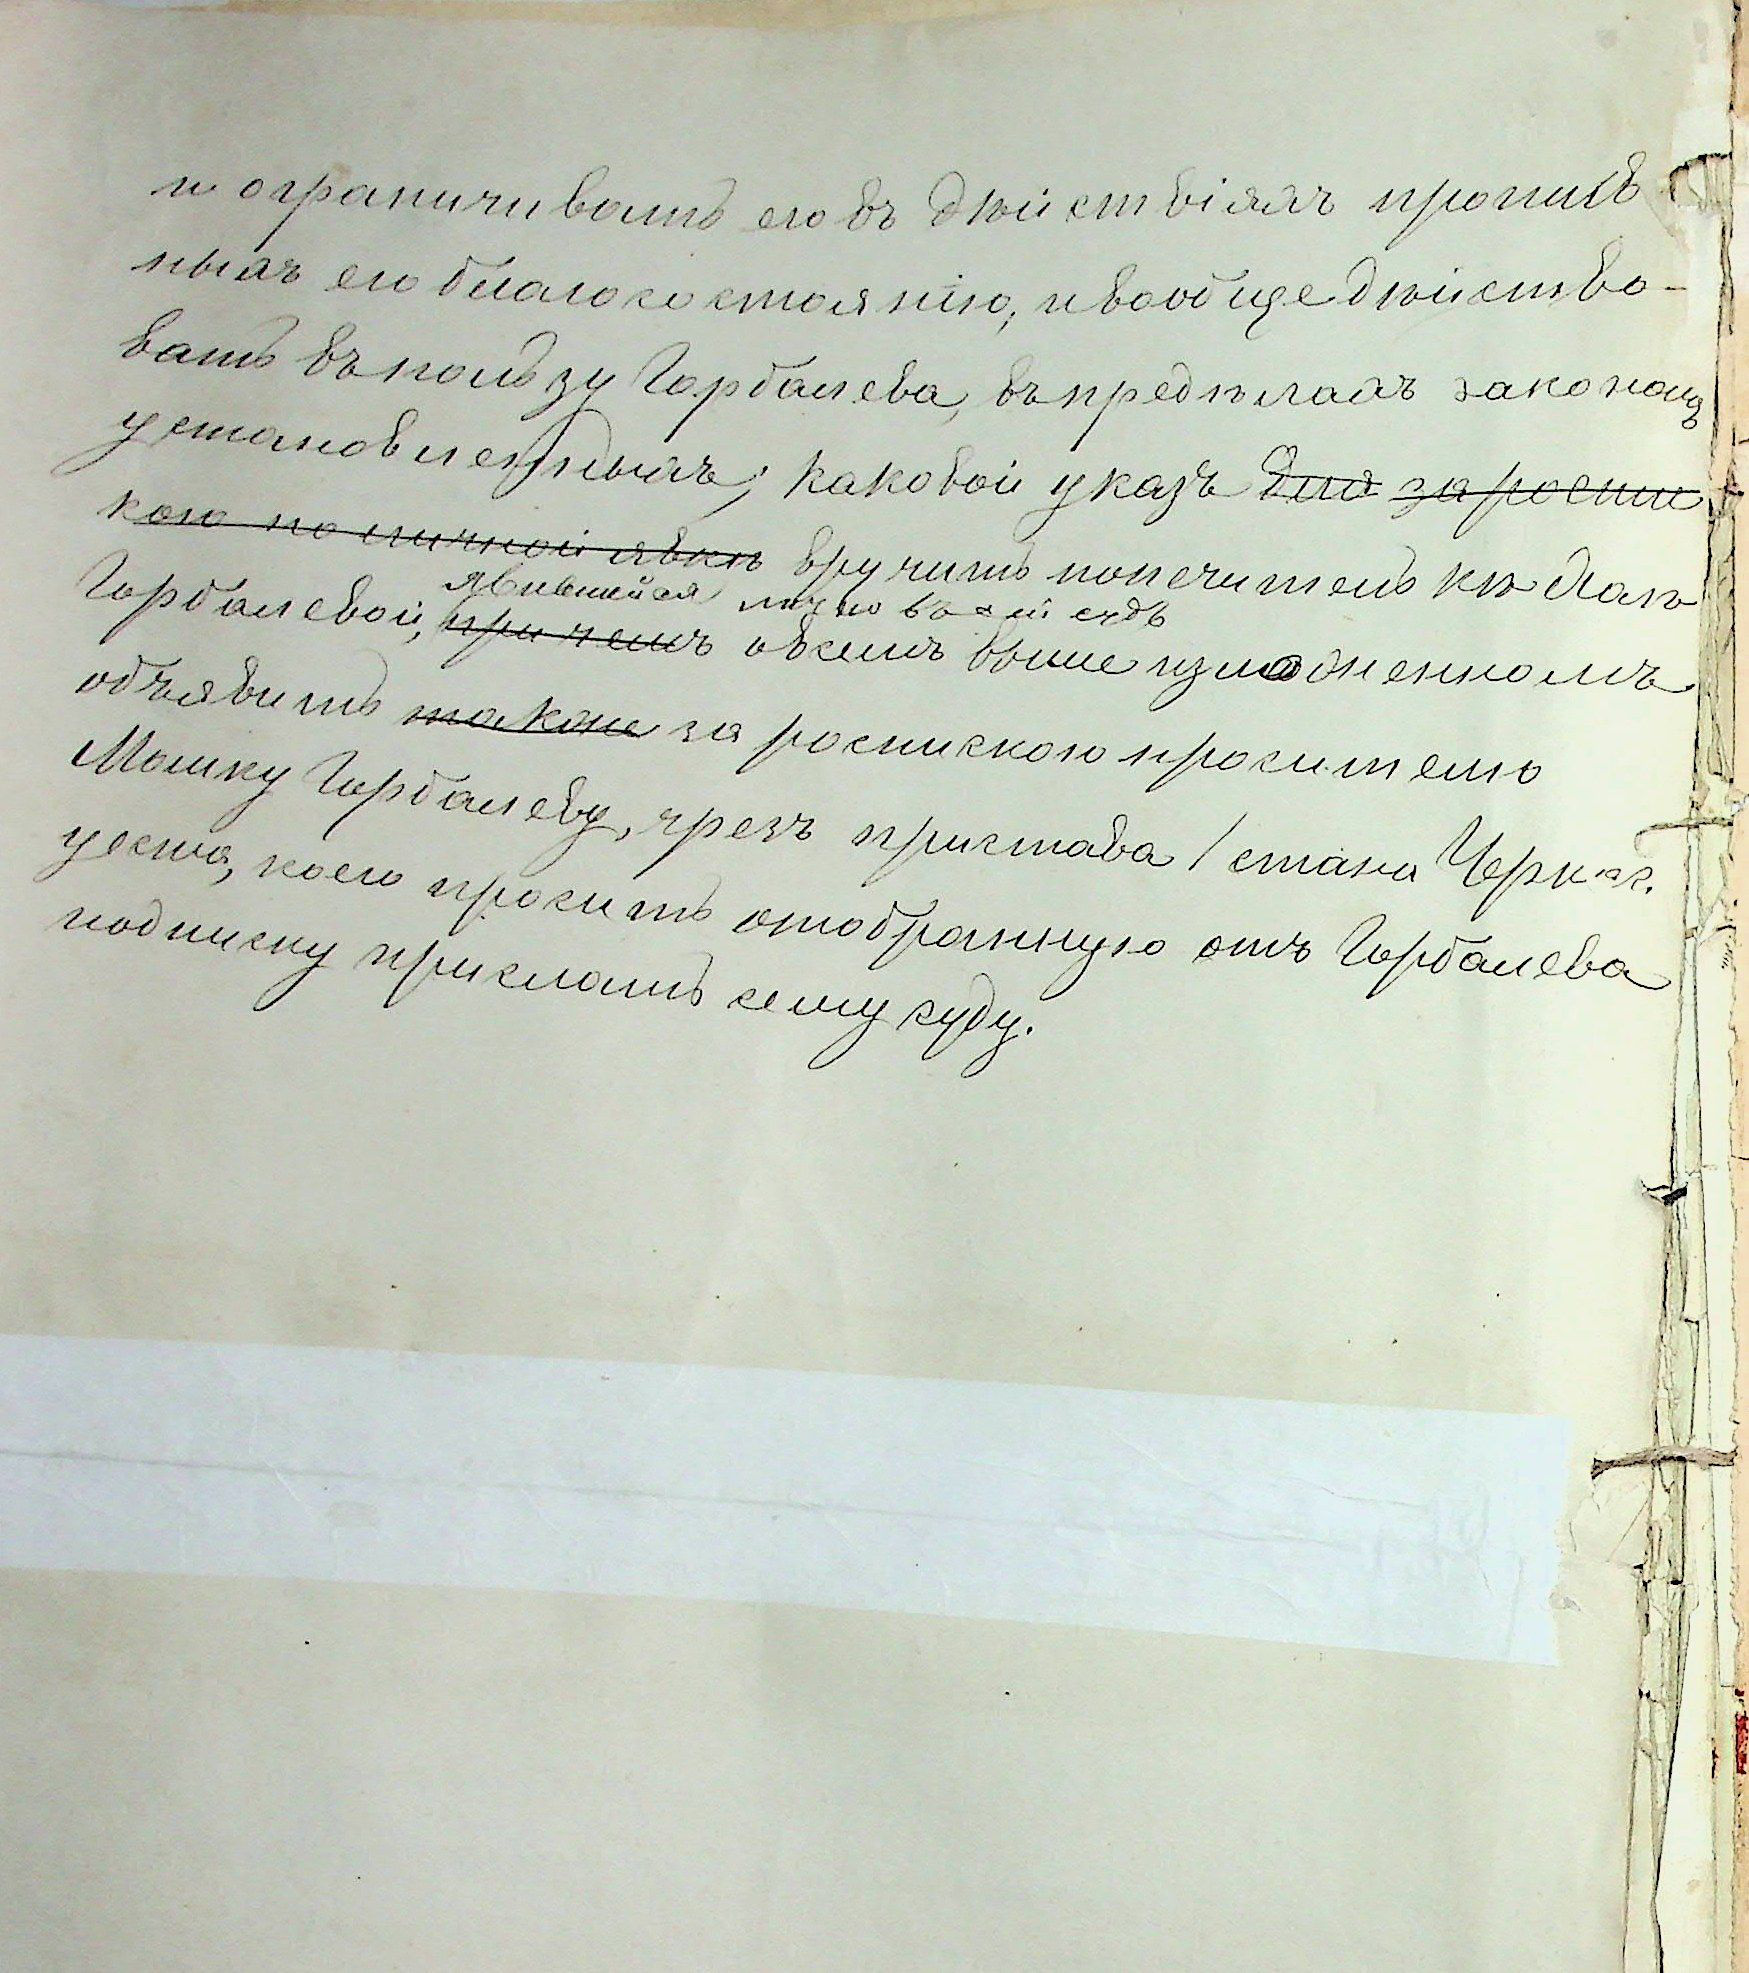 и ограничивать его въ дѣйствіяхъ против
ныхъ его благосостоянію, и вообще дѣйство-
вать въ пользу Горбалева, въ предѣлахъ закономъ
установленныхъ; каковой указъ за роспис
кою по личной явкѣ вручить попечительницѣ
Горбалевой, явившейся лично въ сей судъ
при чемъ о всемъ выше изложенномъ
объявить также за роспискою просителю
Мошку Горбалеву, чрезъ пристава 1 стана Черкас.
уезда, коего просить отобранную отъ Горбалева
подписку прислать сему суду.